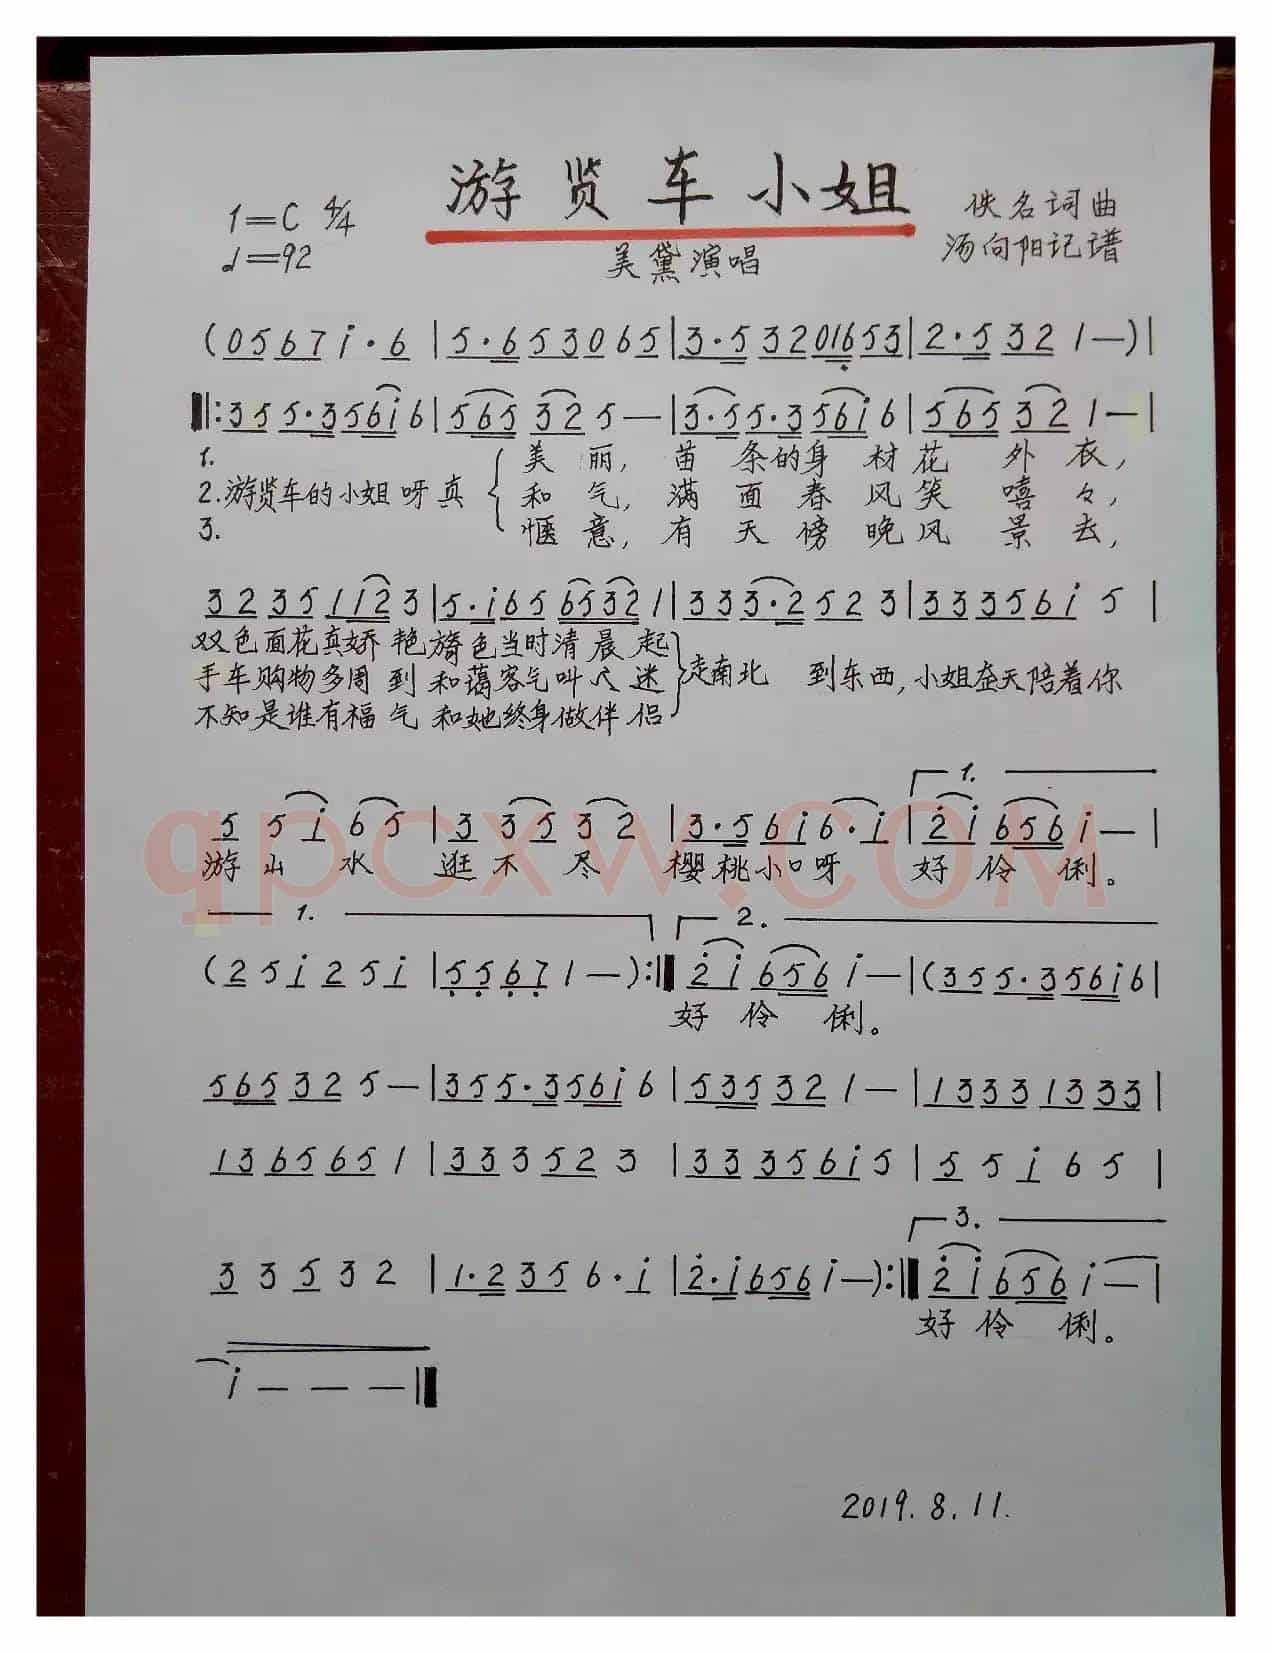 游贤车小姐
1=C 4/4
佚名词曲
♩=92
美黛演唱
汤向阳记谱
(0567i·6|5·653065|3·53201653|2·5321—)|
‖:355·356i6|565325—|3·55·356i6|565321—|
1. 美丽,苗条的身材花外衣,
2.游贤车的小姐呀真 和气,满面春风笑嘻々,
3. 惬意,有天傍晚风景去,
323511i23|5·i6565321|333·2523|33356i5|
双色面花真娇艳旖色当时清晨起
手车购物多周到和蔼客气叫人迷 走南北 到东西,小姐在天陪着你
不知是谁有福气和她终身做伴侣
1.
55i65|33532|3·56i6·i|2i656i—|
游山水逛不尽樱桃小口呀好伶俐。
1. 2.
(25i25i|55671—):‖2i656i—|(355·356i6|
好伶俐。
565325—|355·356i6|535321—|13331333|
1365651|333523|33356i5|55i65|
3.
33532|1·2356·i|2·i656i—):‖2i656i—|
好伶俐。
i———‖
2019.8.11.
qpcxw.com